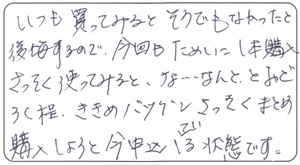 いつも買ってみるとそうでもなかったと
後悔するので、今回もためしに1本購入
さっそく使ってみると、な…なんと、とおど
ろく程、ききめバツグンさっそくまとめ
購入しようと今申込している状態です。